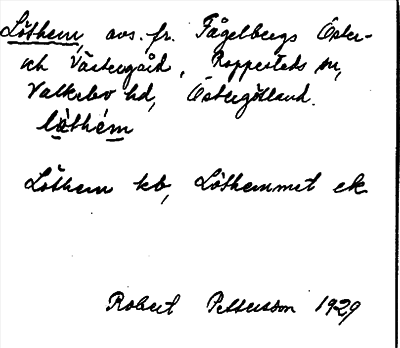 Löthem, avs. fr. Fågelbergs Öster-
och Västergård, Rappestads sn,
Valkebo hd, Östergötland.
lø̀thém
Löthem kb, Löthemmet ek
Robert Pettersson 1929